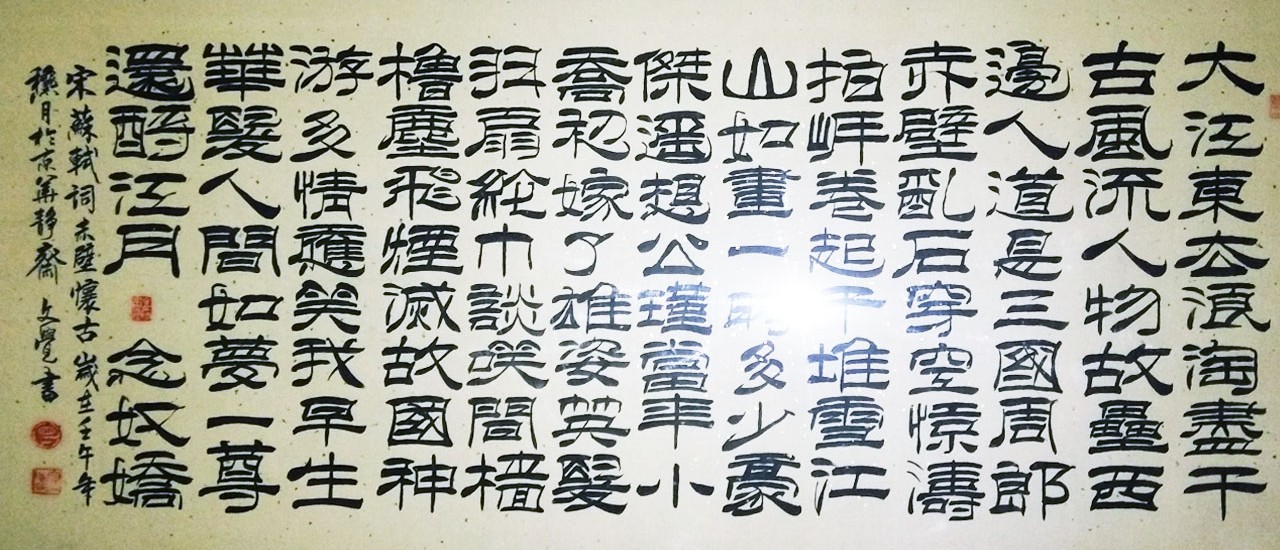 大江東去浪淘盡千
古風流人物故壘西
邊人道是三國周郎
赤壁亂石穿空惊濤
拍岸卷起千堆雪江
山如畫一時多少豪
傑遙想公瑾當年小
喬初嫁了雄姿英髮
羽扇綸巾談咲間檣
櫓塵飛煙滅故國神
游多情應笑我早生
華髮人間如夢一尊
還酹江月 念奴嬌
宋蘇軾詞赤壁懷古歲在壬午年
月於京華靜齋 文覺書